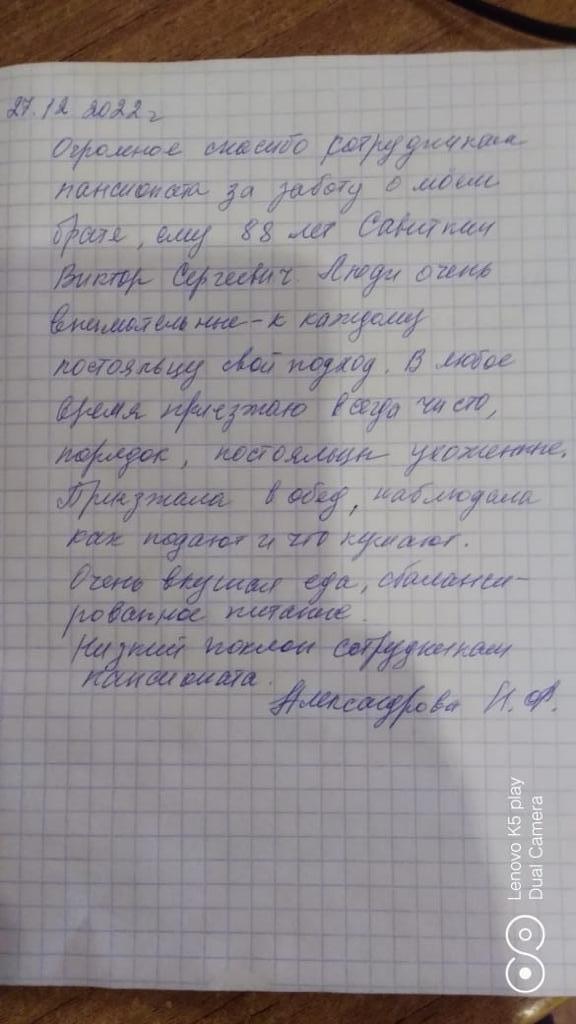 27.12 2022г
Огромное спасибо сотрудникам
пансионата за заботу о моём
брате, ему 88 лет
Виктор Сергеевич. Люди очень
внимательные - к каждому
постояльцу свой подход. В любое
время приезжаю всегда чисто,
порядок, постояльцы ухоженные.
Приезжала в обед, наблюдала
как подают и что кушают.
Очень вкусная еда, сбаланси-
рованное питание.
Низкий поклон сотрудникам
пансионата.
Александрова Н.Ф.
Lenovo K5 play
Dual Camera